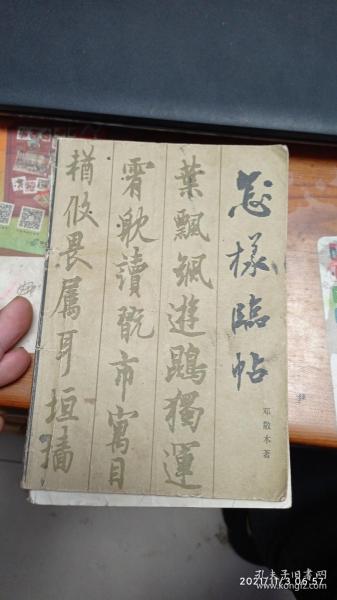 怎様臨帖
邓散木著
葉飄颻遊鵾獨運
霄耽讀翫市寓目
輶攸畏属耳垣墻
2021/11/3 06:57
孔夫子旧书网